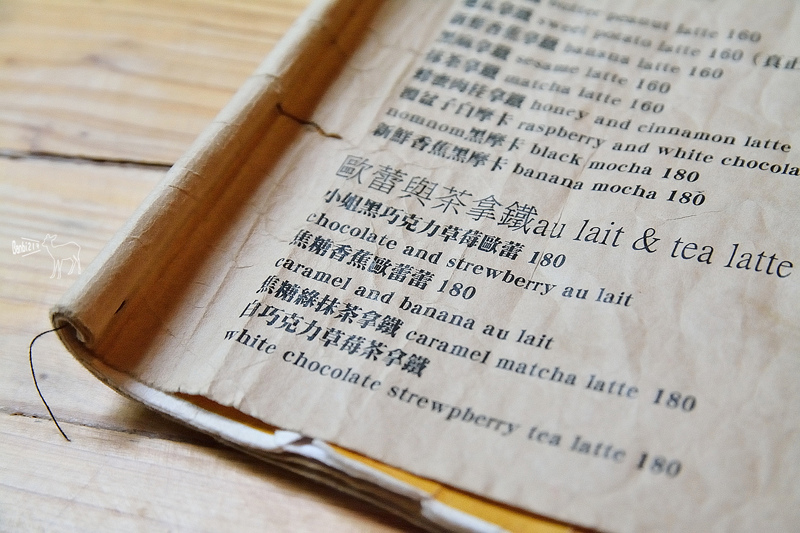 peanut latte 160
sweet potato latte 160
新鮮香蕉拿鐵 banana latte 160
黑麻拿鐵 sesame latte 160
抹茶拿鐵 matcha latte 160
蜂蜜肉桂拿鐵 honey and cinnamon latte
覆盆子白摩卡 raspberry and white chocola
nomnom黑摩卡 black mocha 180
新鮮香蕉黑摩卡 banana mocha 180
歐蕾與茶拿鐵au lait & tea latte
小姐黑巧克力草莓歐蕾 180
chocolate and strewberry au lait
焦糖香蕉歐蕾蕾 180
caramel and banana au lait
焦糖綠抹茶拿鐵 caramel matcha latte 180
白巧克力草莓茶拿鐵
white chocolate strewpberry tea latte 180